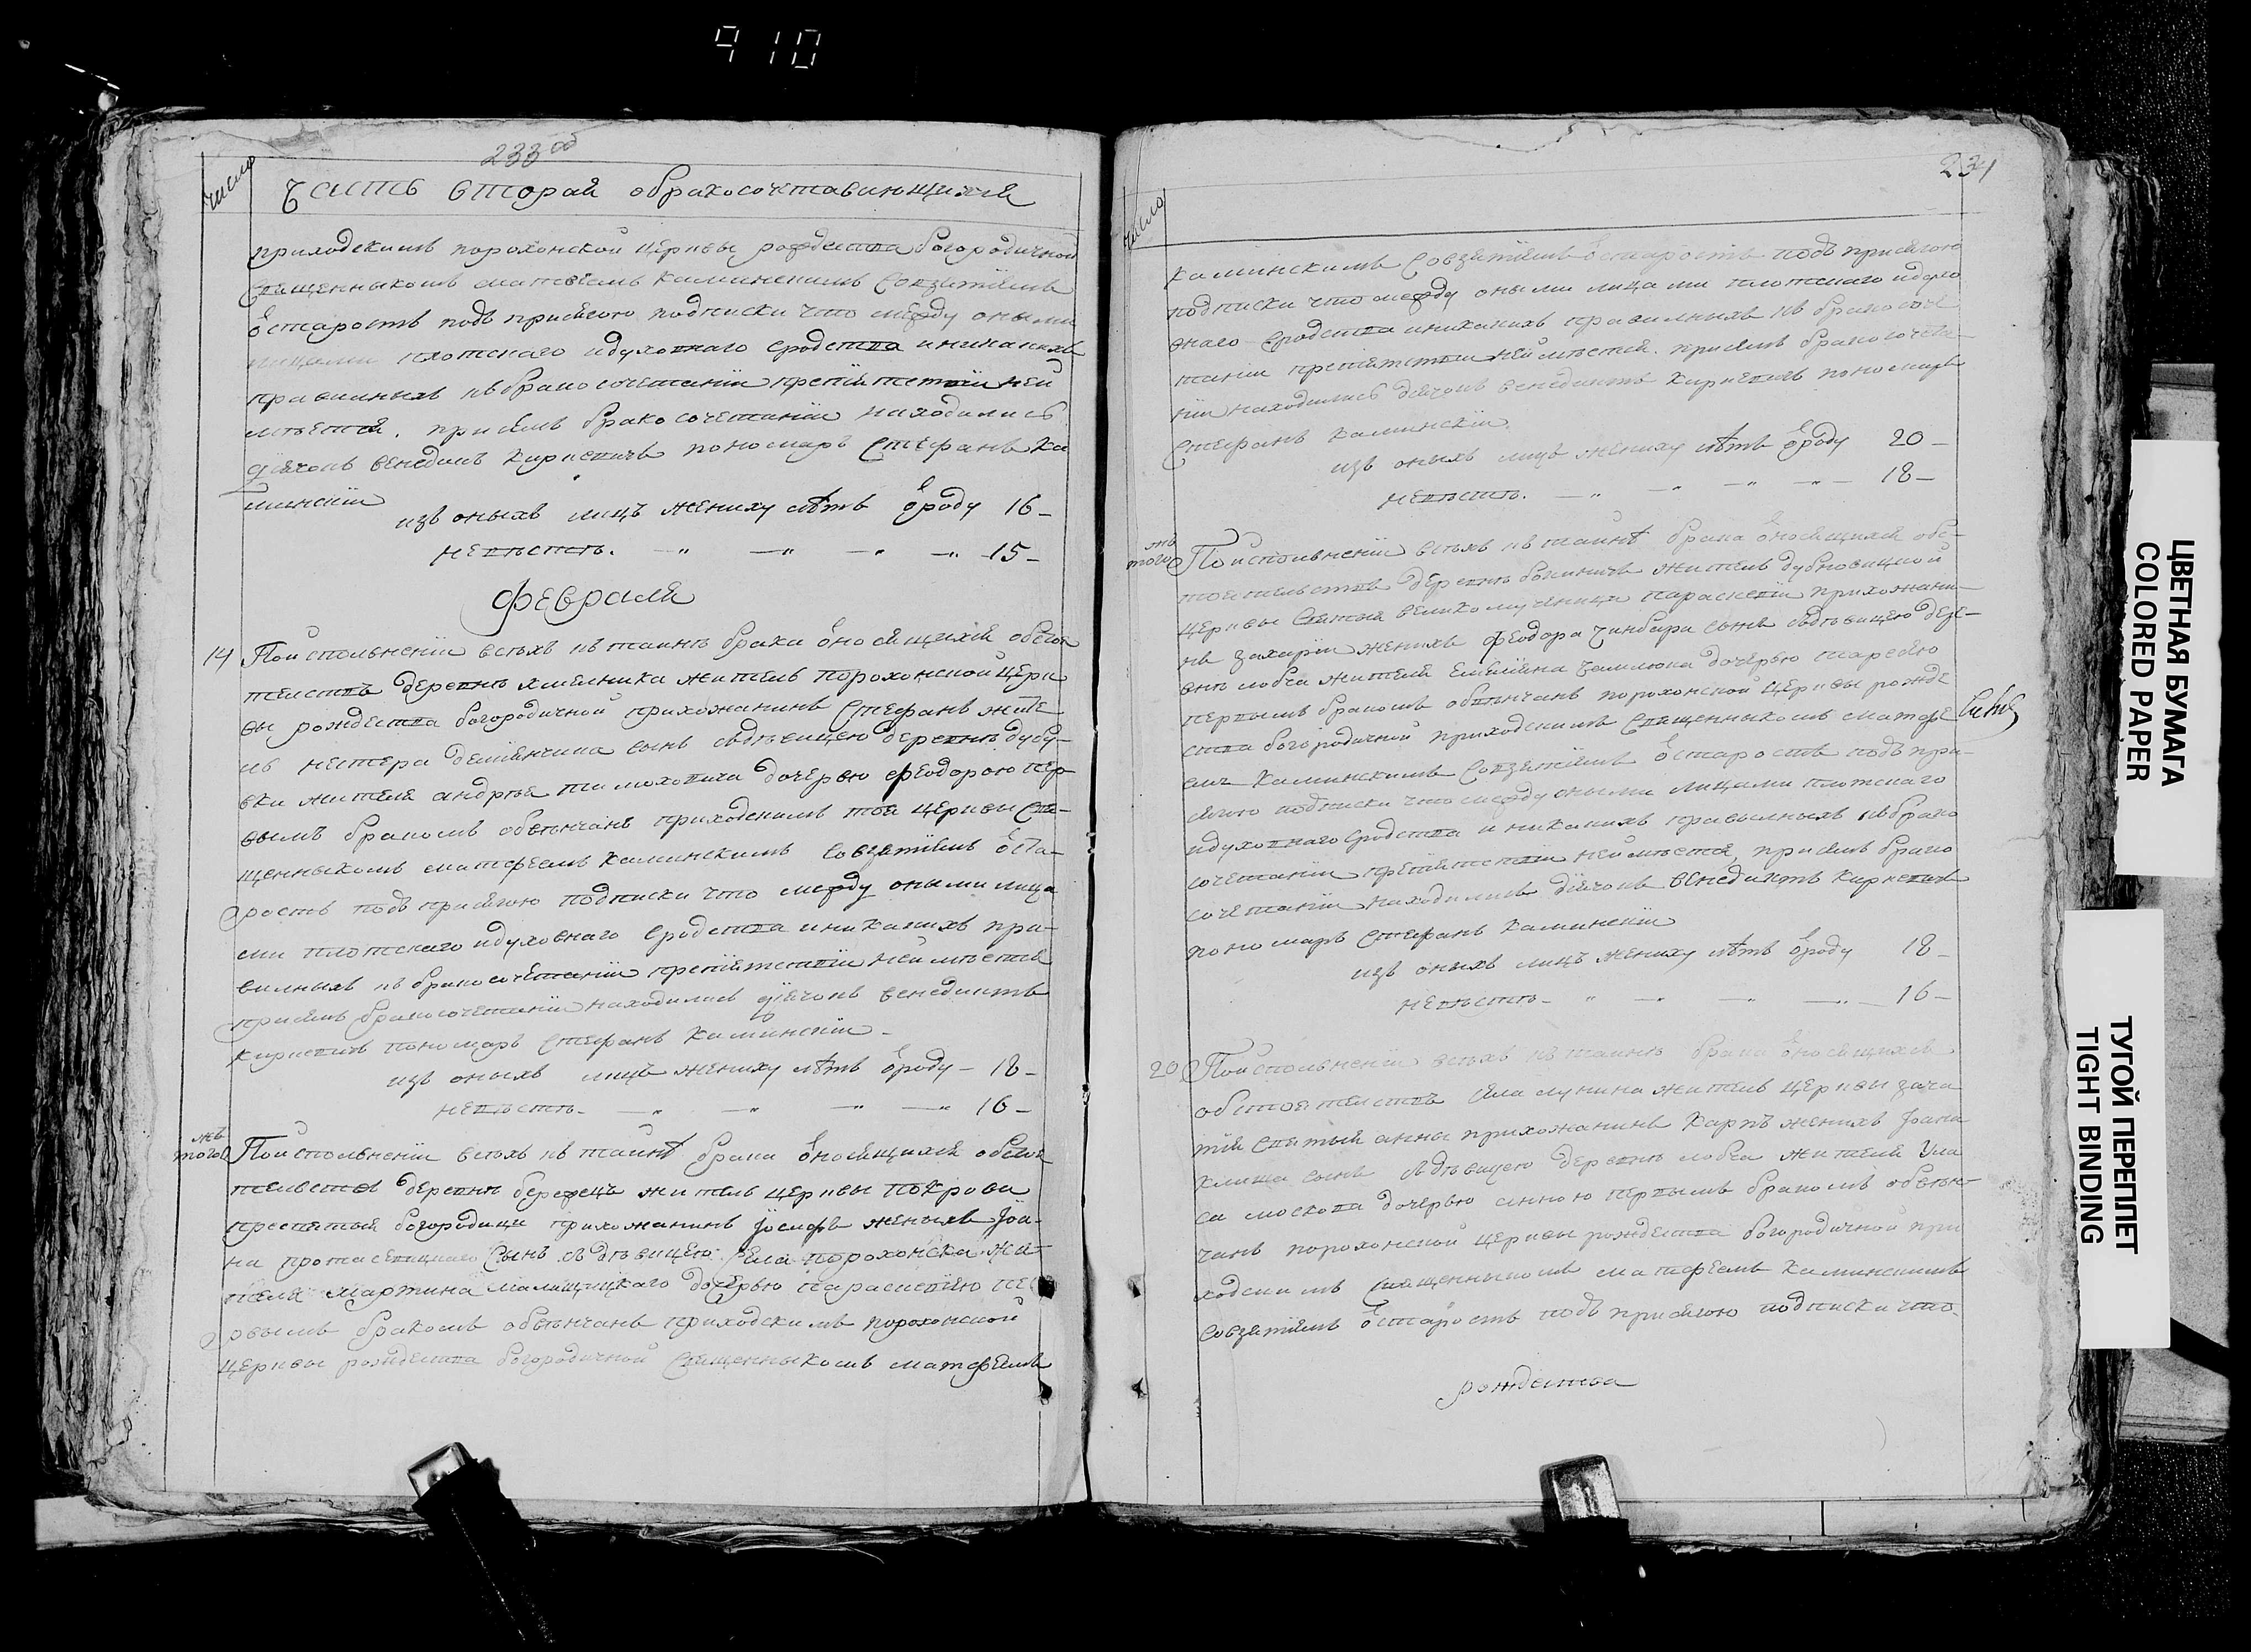 910
233 об
число
Часть вторая обракосочтавшихся
приходскимъ порохонской церквы рождества богородичной
священыкомъ матфеемъ каминскимъ совзятіемъ
остаростъ подъ присягою подписки что между оными
лицами плотскаго идуховнаго сродства иникакихъ
правилныхъ къбракосочетанію препятствій неи
мѣется. присемъ бракосочетаніи находились
діячокъ венедиктъ кирневичъ пономаръ Стефанъ Ка
минскіи
изъ оныхъ лицъ жениху лѣтъ ѿроду 16-
невѣстѣ. — " — " — " — " 15-
Февраля
14 Поисполненіи всѣхъ ктаинѣ брака ѿносящихся обстоя
телствъ деревнѣ хмелника житель порохонской церк
вы рождества богородичной прихожанинъ Стефанъ жите
ль нестера демянчика сынъ сдѣвицею деревнѣ дубу-
вки жителя андрѣя тимоховича дочерью феодорою пер
вымъ бракомъ обвѣнчанъ приходскимъ той церквы свя-
щенныкомъ матфеемъ каминскимъ совзятіемъ ѿста-
ростъ подъ присягою подписки что между оными лица
ми плотскаго идуховнаго сродства иникакихъ пра-
вилныхъ къбракосочетаніи препятствіи неимѣется
присемъ бракосочетаніи находились діячокъ венедиктъ
кирневичъ пономаръ Стефанъ Каминскіи -
изъ оныхъ лицъ жениху лѣтъ ѿроду - 18-
невѣстѣ. — " — " — " — " 16-
тогожъ Поисполненіи всѣхъ ктаинѣ брака ѿносящихся обстоя
телствъ деревнѣ бережцъ житель церквы покрова
пресвятыя богородици прихожанинъ Іосифъ женыхъ Іоа-
на протасевицкаго сынъ сдѣвицею села порохонска жи-
теля мартина малищицкаго дочерью параскевіею пе
рвымъ бракомъ обвѣнчанъ приходскимъ порохонской
церквы рождества богородичной священныкомъ матфеемъ
234
число
каминскимъ совзятіемъ ѿстарость подъ присягою
подписки что между оными лицами плотскаго идухо
внаго сродства иникакихъ правилныхъ къбракосоче
таніи препятствіи неимѣется. присемъ бракосочета-
ніи находились діячокъ венедиктъ кирневичъ пономаръ
Стефанъ каминскіи
изъ оныхъ лицъ жениху лѣтъ ѿроду 20-
невѣстѣ. — " — " — " — " — 18-
тогожъ Поисполненіи всѣхъ ктаинѣ брака ѿносящихся обс-
тоятельствъ деревнѣ боминичъ житель дубновицкой
церквы святыя великомученици параскевіи прихожани-
нъ захаріи женихъ феодора чинбара сынъ сдѣвицею дере-
внѣ лобча жителя емеліяна чамлюка дочерью
первымъ бракомъ обвѣнчанъ порохонской церквы рожде
ства богородичной приходскимъ священныкомъ матфе
емъ каминскимъ совзятіемъ ѿстарость подъ при-
сягою подписки что между оными лицами плотскаго
идуховнаго сродства и никакихъ правылныхъ къбрако
сочетаніи препятствіи неимѣется, присемъ брако
сочетаніи находились діячокъ венедиктъ кирневичъ
пономаръ Стефанъ Каминскіи
изъ оныхъ лицъ жениху лѣтъ ѿроду 18-
невѣстѣ - " — " — " — " — 16-
20 Поисполненіи всѣхъ ктаинѣ брака ѿносящихся
обстоятелствъ села лунина житель церквы зача
тія святыя анны прихожанинъ Карпъ женихъ Іоана
Клища сынъ сдѣвицею деревнѣ лобча жителя Ула
са москова дочерью анною первымъ бракомъ обвѣн-
чанъ порохонской церквы рождества богородичной при
ходскимъ священныкомъ матфеемъ каминскимъ
совзятіемъ ѿстарость подъ присягою подписки что
рождества
ЦВЕТНАЯ БУМАГА
COLORED PAPER
ТУГОЙ ПЕРЕПЛЕТ
TIGHT BINDING